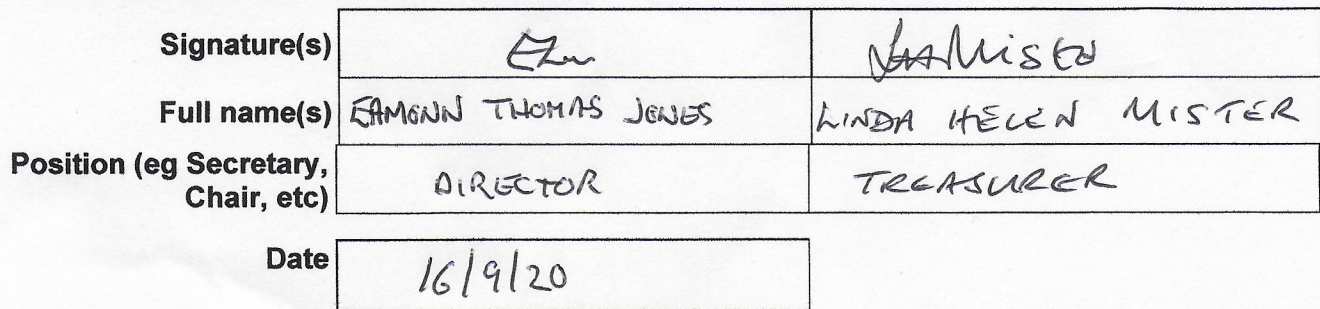 Signature(s)
Full name(s) EAMONN THOMAS JONES LINDA HELEN MISTER
Position (eg Secretary, DIRECTOR TREASURER
Chair, etc)
Date 16/9/20